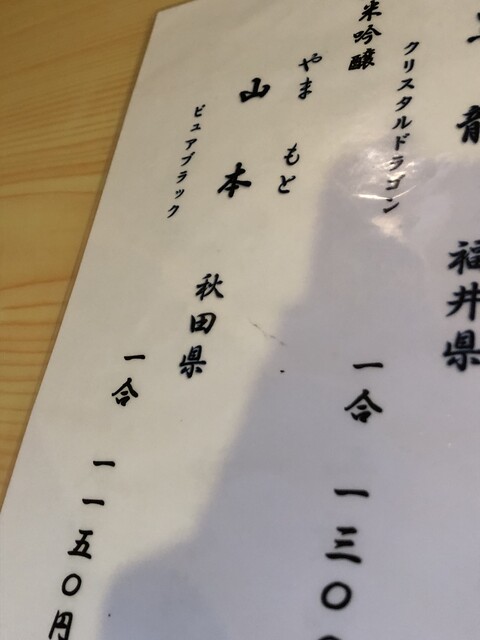 龍
福井県
クリスタルドラゴン
一合
一三〇
米吟醸
やま もと
山本
秋田県
ピュアブラック
一合
一一五〇円